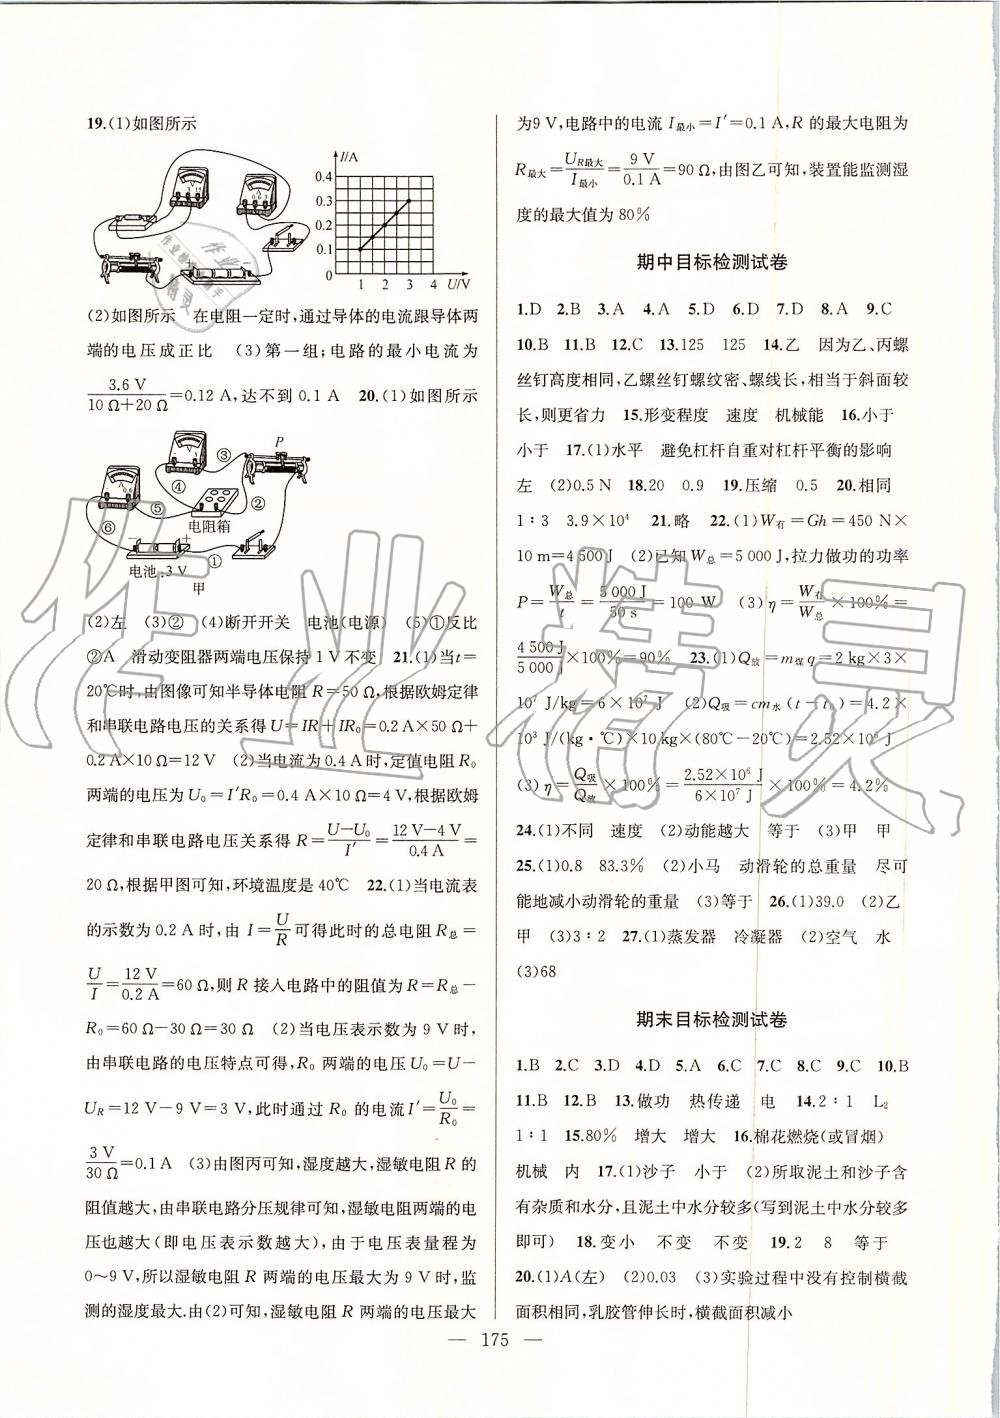 19.(1)如图所示
I/A
0.4
0.3
0.2
0.1
0
1 2 3 4 U/V
(2)如图所示 在电阻一定时,通过导体的电流跟导体两
端的电压成正比 (3)第一组;电路的最小电流为
3.6 V/(10 Ω+20 Ω)=0.12 A,达不到 0.1 A 20.(1)如图所示
P
③
④
②
⑤
⑥
①
电阻箱
电池:3 V
甲
(2)左 (3)② (4)断开开关 电池(电源) (5)①反比
②A 滑动变阻器两端电压保持 1 V 不变 21.(1)当 t=
20℃时,由图像可知半导体电阻 R=50 Ω,根据欧姆定律
和串联电路电压的关系得 U=IR+IR₀=0.2 A×50 Ω+
0.2 A×10 Ω=12 V (2)当电流为 0.4 A 时,定值电阻 R₀
两端的电压为 U₀=I′R₀=0.4 A×10 Ω=4 V,根据欧姆
定律和串联电路电压关系得 R=(U−U₀)/I′=(12 V−4 V)/0.4 A=
20 Ω,根据甲图可知,环境温度是 40℃ 22.(1)当电流表
的示数为 0.2 A 时,由 I=U/R 可得此时的总电阻 R总=
U/I=12 V/0.2 A=60 Ω,则 R 接入电路中的阻值为 R=R总−
R₀=60 Ω−30 Ω=30 Ω (2)当电压表示数为 9 V 时,
由串联电路的电压特点可得,R₀ 两端的电压 U₀=U−
U_R=12 V−9 V=3 V,此时通过 R₀ 的电流 I′=U₀/R₀=
3 V/30 Ω=0.1 A (3)由图丙可知,湿度越大,湿敏电阻 R 的
阻值越大,由串联电路分压规律可知,湿敏电阻两端的电
压也越大(即电压表示数越大),由于电压表量程为
0~9 V,所以湿敏电阻 R 两端的电压最大为 9 V 时,监
测的湿度最大.由(2)可知,湿敏电阻 R 两端的电压最大
为 9 V,电路中的电流 I最小=I′=0.1 A,R 的最大电阻为
R最大=U_R最大/I最小=9 V/0.1 A=90 Ω,由图乙可知,装置能监测湿
度的最大值为 80%
期中目标检测试卷
1.D 2.B 3.A 4.A 5.D 6.D 7.D 8.A 9.C
10.B 11.B 12.C 13.125 125 14.乙 因为乙、丙螺
丝钉高度相同,乙螺丝钉螺纹密、螺线长,相当于斜面较
长,则更省力 15.形变程度 速度 机械能 16.小于
小于 17.(1)水平 避免杠杆自重对杠杆平衡的影响
左 (2)0.5 N 18.20 0.9 19.压缩 0.5 20.相同
1∶3 3.9×10⁴ 21.略 22.(1)W有=Gh=450 N×
10 m=4 500 J (2)已知 W总=5 000 J,拉力做功的功率
P=W总/t=5 000 J/50 s=100 W (3)η=W有/W总×100%=
4 500 J/5 000 J×100%=90% 23.(1)Q放=m煤q=2 kg×3×
10⁷ J/kg=6×10⁷ J (2)Q吸=cm水(t−t₀)=4.2×
10³ J/(kg·℃)×10 kg×(80℃−20℃)=2.52×10⁶ J
(3)η=Q吸/Q放×100%=2.52×10⁶ J/6×10⁷ J×100%=4.2%
24.(1)不同 速度 (2)动能越大 等于 (3)甲 甲
25.(1)0.8 83.3% (2)小马 动滑轮的总重量 尽可
能地减小动滑轮的重量 (3)等于 26.(1)39.0 (2)乙
甲 (3)3∶2 27.(1)蒸发器 冷凝器 (2)空气 水
(3)68
期末目标检测试卷
1.B 2.C 3.D 4.D 5.A 6.C 7.C 8.C 9.C 10.B
11.B 12.B 13.做功 热传递 电 14.2∶1 L₂
1∶1 15.80% 增大 增大 16.棉花燃烧(或冒烟)
机械 内 17.(1)沙子 小于 (2)所取泥土和沙子含
有杂质和水分,且泥土中水分较多(写到泥土中水分较多
即可) 18.变小 不变 不变 19.2 8 等于
20.(1)A(左) (2)0.03 (3)实验过程中没有控制横截
面积相同,乳胶管伸长时,横截面积减小
— 175 —
作业精灵